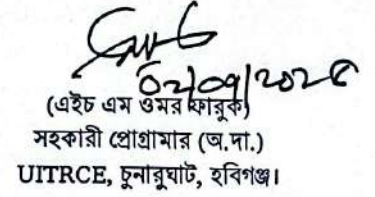 ০২/০৭/২০২৫
(এইচ এম ওমর ফারুক)
সহকারী প্রোগ্রামার (অ.দা.)
UITRCE, চুনারুঘাট, হবিগঞ্জ।